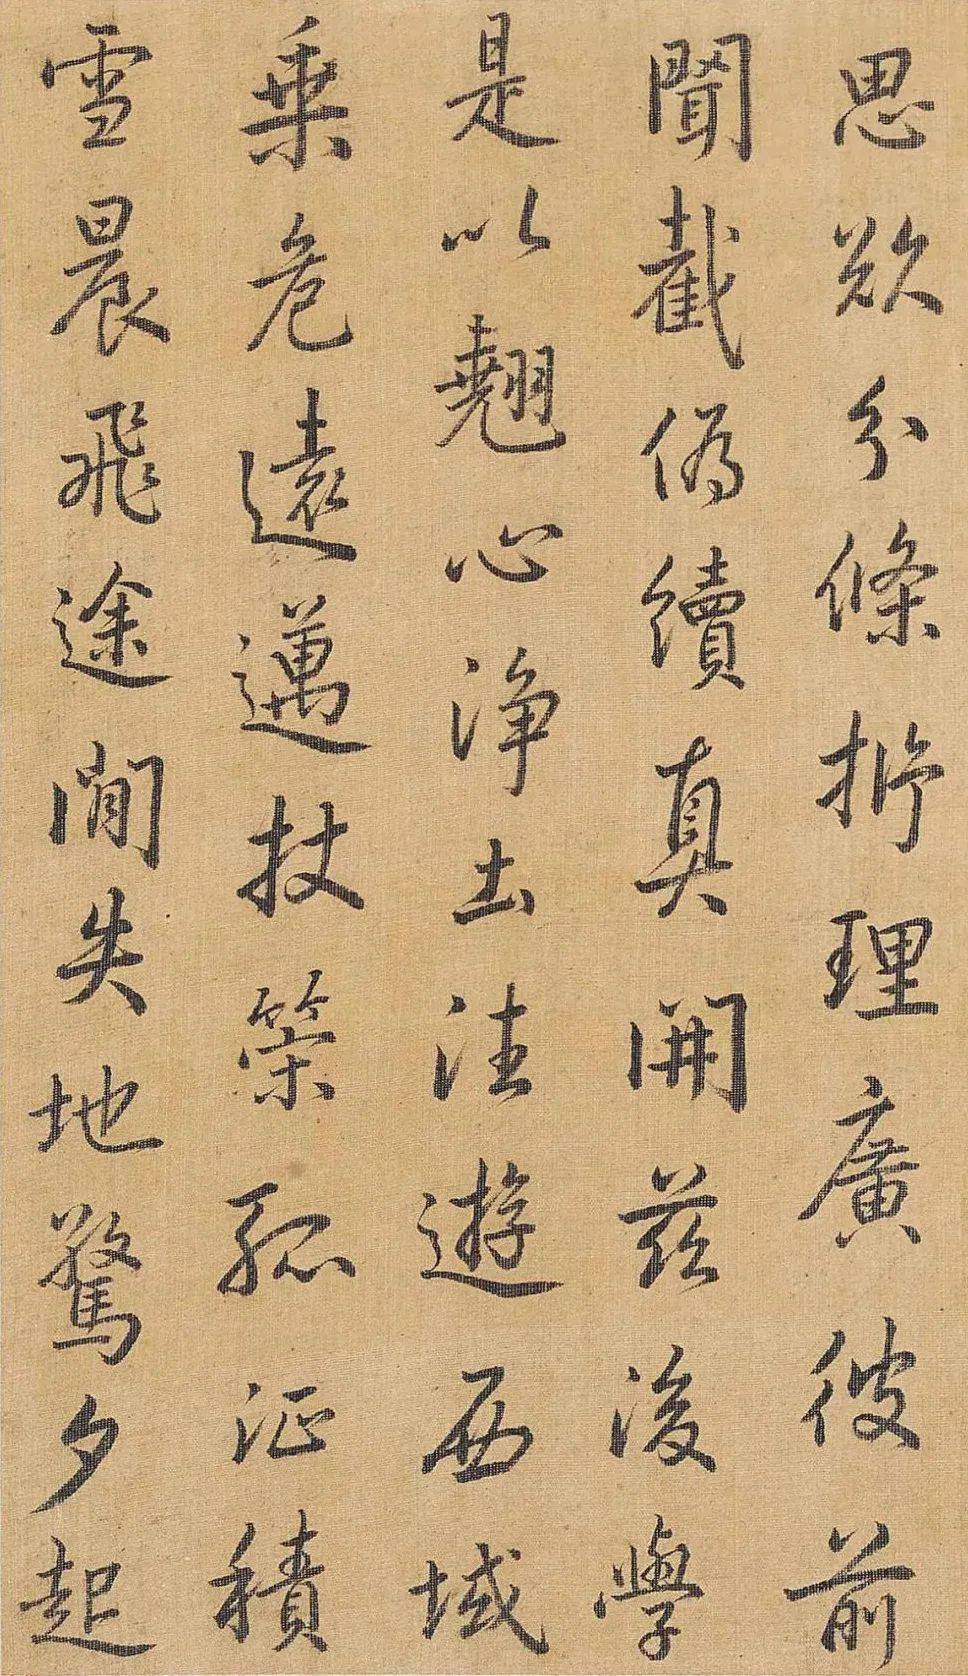 思欲分條析理廣彼前
聞截偽續真開茲後學
是以翹心淨土法遊西域
乗危遠邁杖策孤征積
雪晨飛途間失地驚夕起